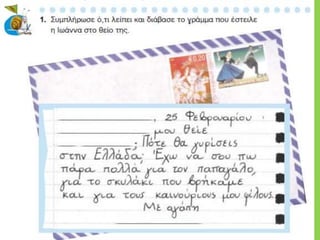 1. Συμπλήρωσε ό,τι λείπει και διάβασε το γράμμα που έστειλε
η Ιωάννα στο θείο της.
0,20
, 25 Φεβρουαρίου
μου θείε
; Πότε θα γυρίσεις
στην Ελλάδα; Έχω να σου πω
πάρα πολλά για τον παπαγάλο,
για το σκυλάκι που βρήκαμε
και για τους καινούριους μου φίλους.
Με αγάπη